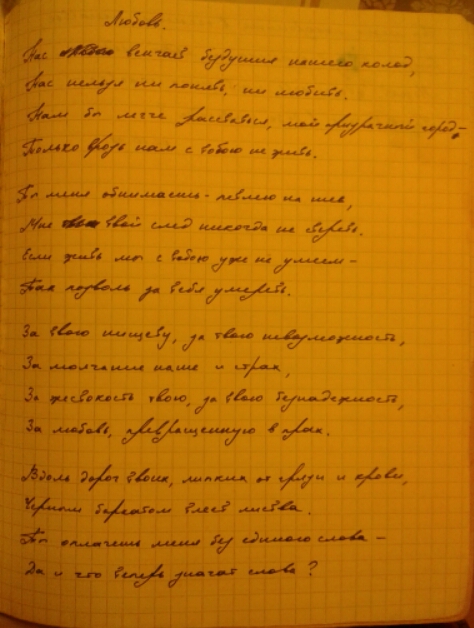 Любовь.
Нас венчает будущим нашего холод,
Нас нельзя ни понять, ни любить.
Нам бы легче расстаться, мой призрачный город,
Только врозь нам с тобою не жить.
Ты меня обнимаешь - петлею на шее,
Мне твой след никогда не стереть.
Если жить мы с тобою уже не умеем -
Так позволь за тебя умереть.
За твою нищету, за твою невозможность,
За молчание наше и страх,
За жестокость твою, за твою безнадежность,
За любовь, превращенную в прах.
Вдоль дорог твоих, липких от грязи и крови,
Черным бархатом листва.
Ты оплачешь меня без единого слова -
Да и что теперь значат слова?